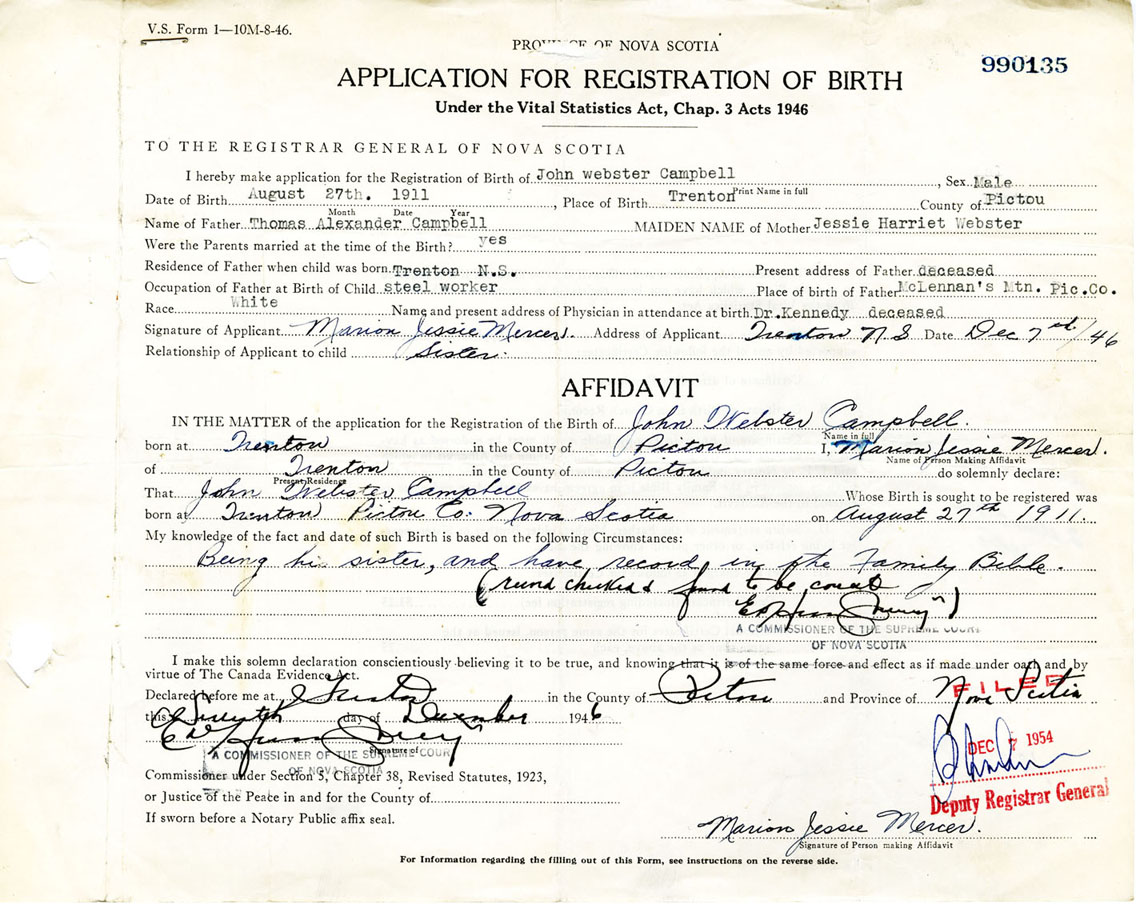 V.S. Form 1—10M-8-46.
PROVINCE OF NOVA SCOTIA
990135
APPLICATION FOR REGISTRATION OF BIRTH
Under the Vital Statistics Act, Chap. 3 Acts 1946
TO THE REGISTRAR GENERAL OF NOVA SCOTIA
I hereby make application for the Registration of Birth of John webster Campbell, Sex Male
Print Name in full
Date of Birth August 27th. 1911, Place of Birth Trenton County of Pictou
Month Date Year
Name of Father Thomas Alexander Campbell MAIDEN NAME of Mother Jessie Harriet Webster
Were the Parents married at the time of the Birth? yes
Residence of Father when child was born Trenton N.S. Present address of Father deceased
Occupation of Father at Birth of Child steel worker Place of birth of Father McLennan's Mtn. Pic.Co.
Race White Name and present address of Physician in attendance at birth Dr.Kennedy deceased
Signature of Applicant Marion Jessie Mercer. Address of Applicant Trenton N S Date Dec 7th/46
Relationship of Applicant to child Sister.
AFFIDAVIT
IN THE MATTER of the application for the Registration of the Birth of John Webster Campbell.
Name in full
born at Trenton in the County of Pictou I, Marion Jessie Mercer.
Name of Person Making Affidavit
of Trenton in the County of Pictou do solemnly declare:
Present Residence
That John Webster Campbell Whose Birth is sought to be registered was
born at Trenton Pictou Co: Nova Scotia on August 27th 1911.
My knowledge of the fact and date of such Birth is based on the following Circumstances:
Being his sister, and have record in the Family Bible.
( checked & found to be )
A COMMISSIONER OF THE SUPREME COURT
OF NOVA SCOTIA
I make this solemn declaration conscientiously believing it to be true, and knowing that it is of the same force and effect as if made under oath and by
virtue of The Canada Evidence Act.
Declared before me at Trenton in the County of Pictou and Province of Nova Scotia
FILED
this Seventh day of December 1946
Signature of
A COMMISSIONER OF THE SUPREME COURT
OF NOVA SCOTIA
DEC 7 1954
Commissioner under Section 3, Chapter 38, Revised Statutes, 1923,
or Justice of the Peace in and for the County of
Deputy Registrar General
If sworn before a Notary Public affix seal.
Marion Jessie Mercer.
Signature of Person making Affidavit
For Information regarding the filling out of this Form, see instructions on the reverse side.